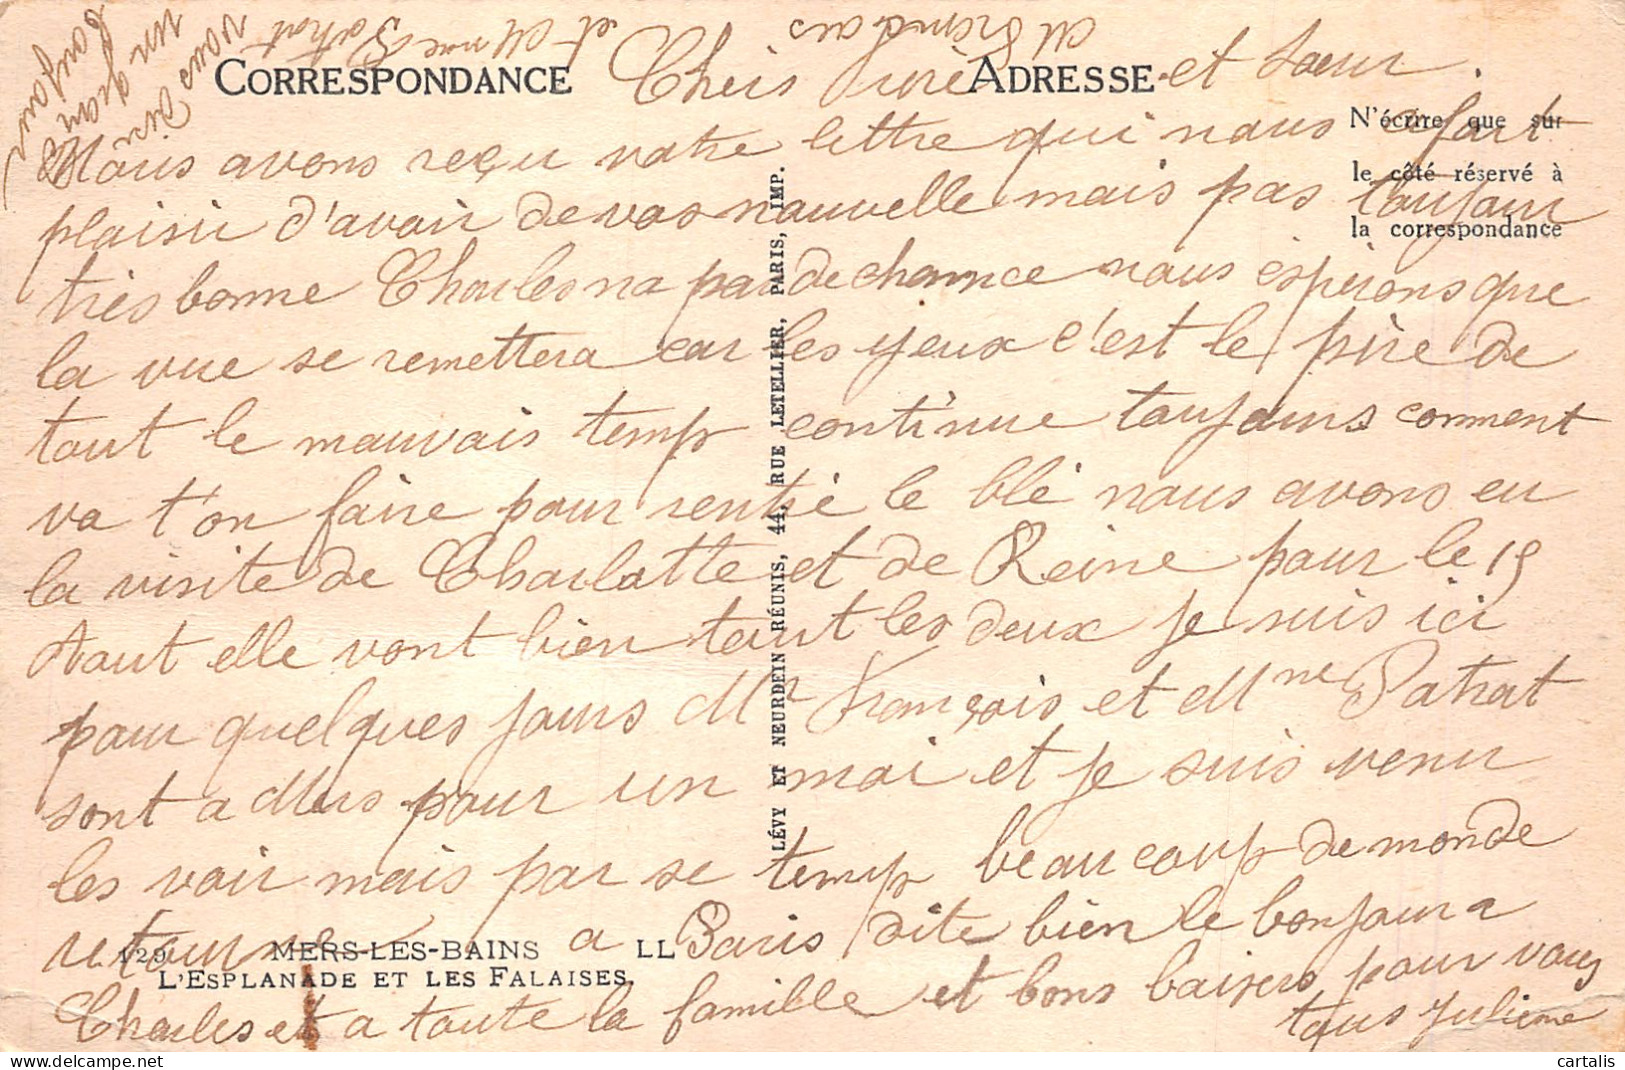 CORRESPONDANCE
ADRESSE
N'écrire que sur
le côté réservé à
la correspondance
Chers frère et Sœur.
Nous avons reçu votre lettre qui nous a fait
plaisir d'avoir de vos nouvelle mais pas toujour
très bonne Charles na pas de chance nous espérons que
la vue se remettera car les yeux c'est le pire de
tout le mauvais temp continue toujours comment
va t'on faire pour rentré le blé nous avons eu
la visite de Charlotte et de Reine pour le 15
Aout elle vont bien tout les deux je suis ici
pour quelques jours Mr François et Mme Patrat
sont a Mers pour un moi et je suis venu
les voir mais par se temp beaucoup de monde
retourne a Paris dite bien le bonjour a
Charles et a toute la famille et bons baisers pour vous
tous Julienne
M François
et Mme Patrat
vous dise
un gran
bonjour
LÉVY ET NEURDEIN RÉUNIS, 44, RUE LETELLIER, PARIS, IMP.
129 MERS-LES-BAINS LL
L'ESPLANADE ET LES FALAISES.
cartalis